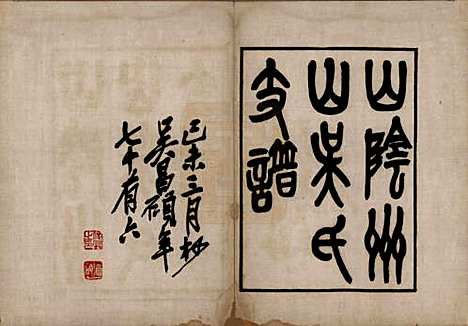 山陰州
山吴氏
支譜
己未三月杪
吴昌碩年
七十有六